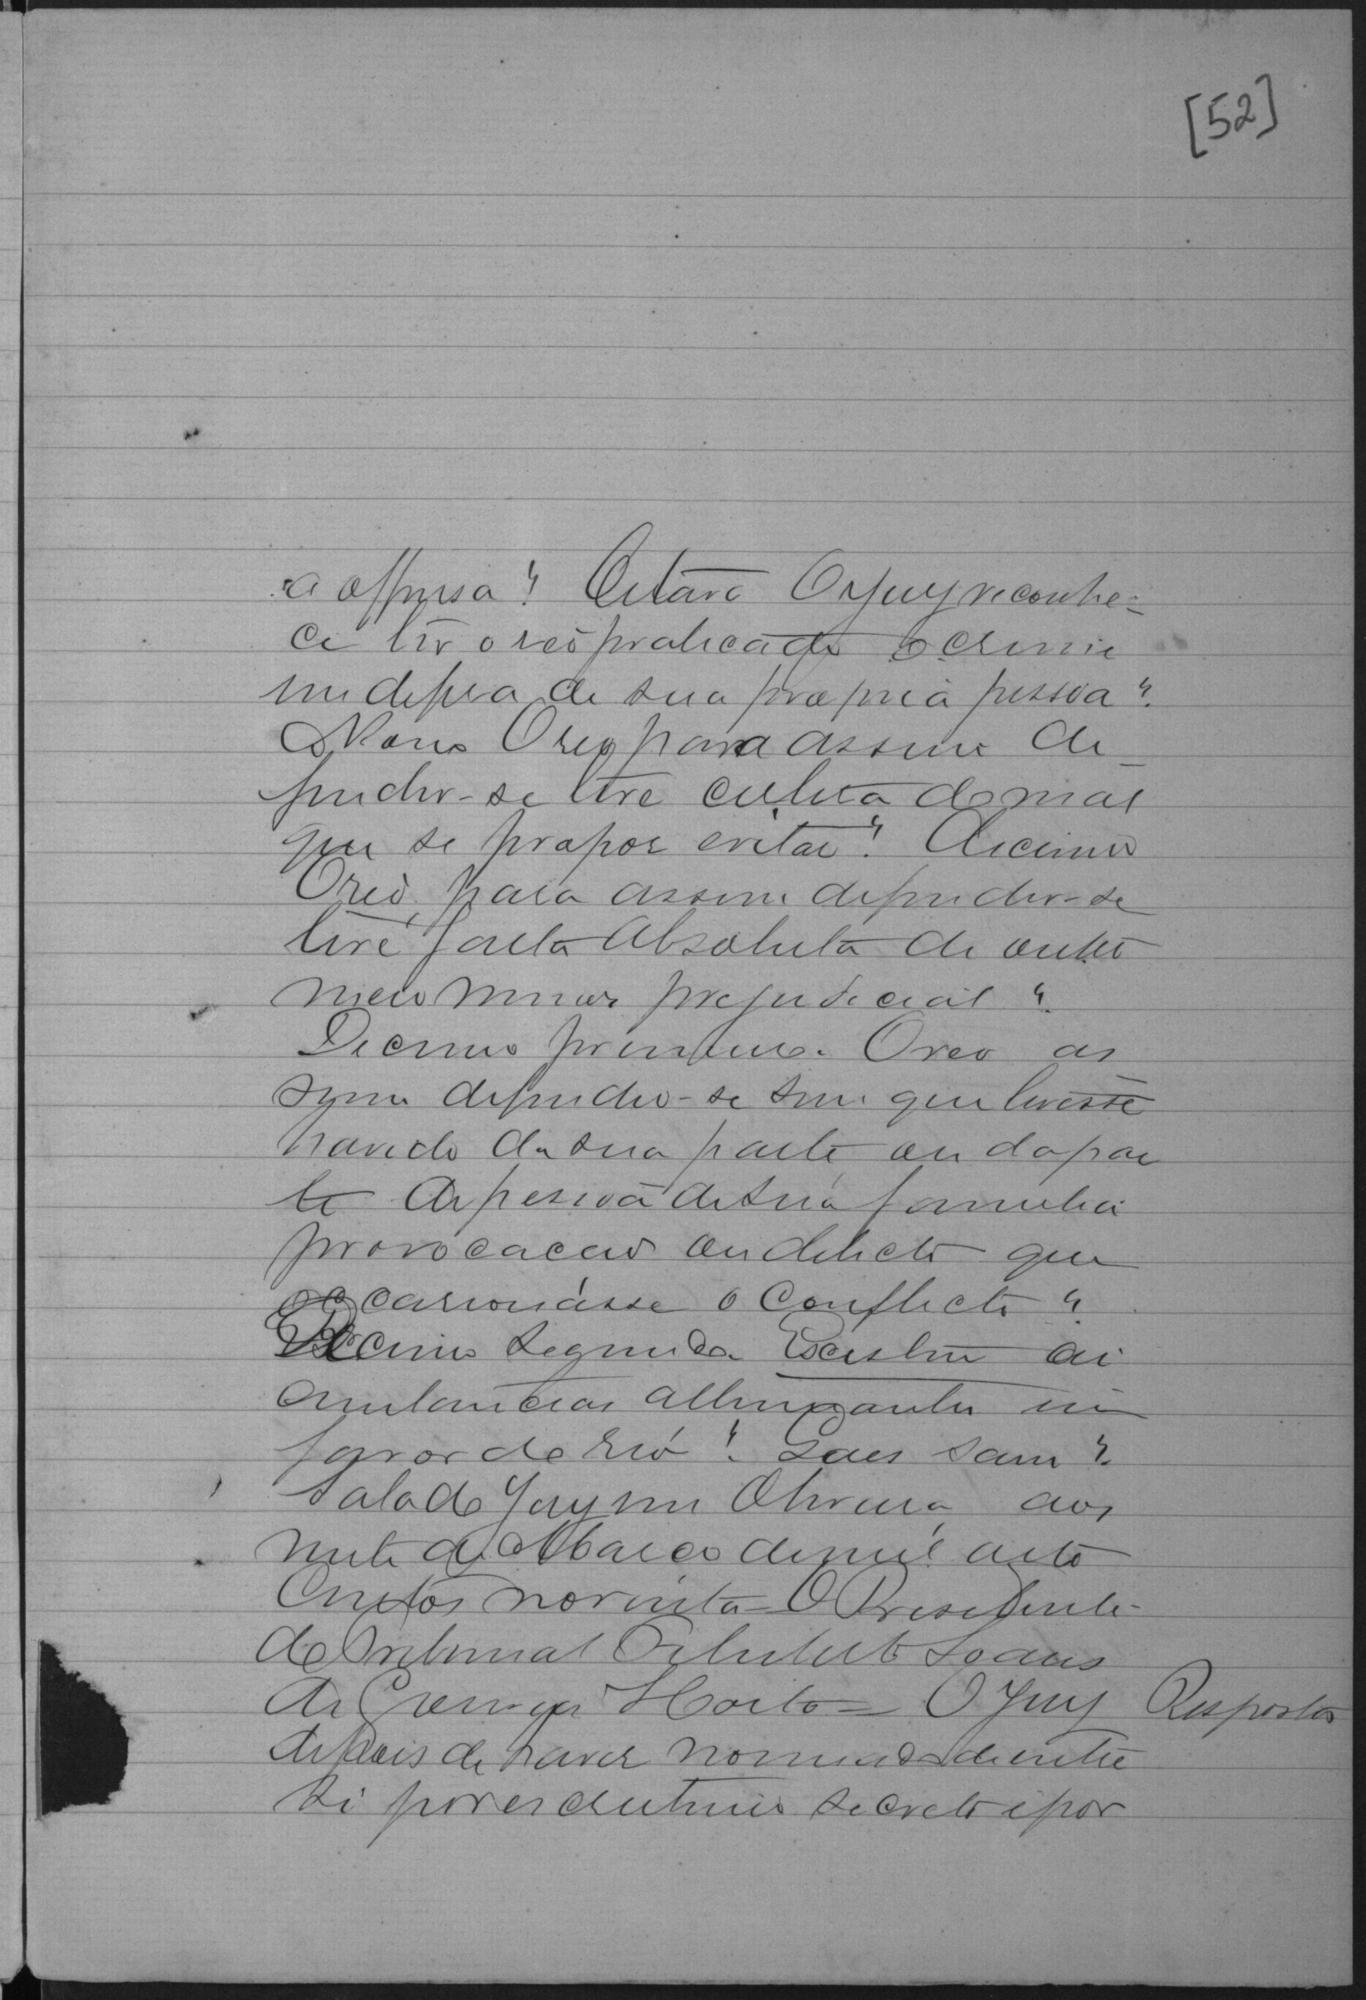 [52]
a offensa? Oitavo O Jury reconhe-
ce ter o reo praticado o crime
em defesa de sua propria pessoa?
Nono O reo para assim de-
fender-se teve certeza do mal
que se propos evitar? Decimo
O reo, para assim defender-se
teve falta absoluta de outro
meio menos prejudicial?
Decimo primeiro. O reo as
sim defendeo-se sem que tivesse
havido da sua parte ou da par
te de pessoa de sua familia
provocacao ou delicto que
occasionásse o conflicto?
Decimo segundo Existem cir
cumstancias attenuantes em
favor do reo? Quaes sam?
Sala do Jury em Oliveira, aos
de Março de mil oito
centos noventa = O Presidente
do Tribunal Soares
de Horta = O Jury Respostas
depois de haver nomeado dentre
si por escrutinio secreto e por